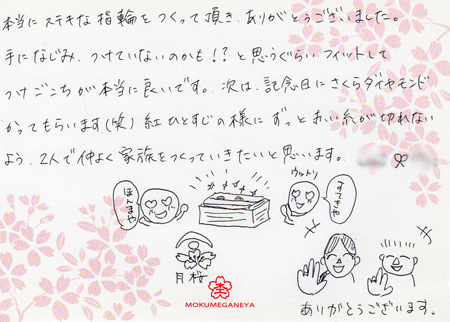 本当にステキな指輪をつくって頂き、ありがとうございました。
手になじみ、つけていないのかも!?と思うぐらいフィットして
つけごこちが本当に良いです。次は、記念日にさくらダイヤモンド
かってもらいます(笑)紅ひとすじの様にずっと赤い糸が切れない
よう、2人で仲よく家族をつくっていきたいと思います。
ほんまや
ウットリ
すてきや
月桜
MOKUMEGANEYA
ありがとうございます。